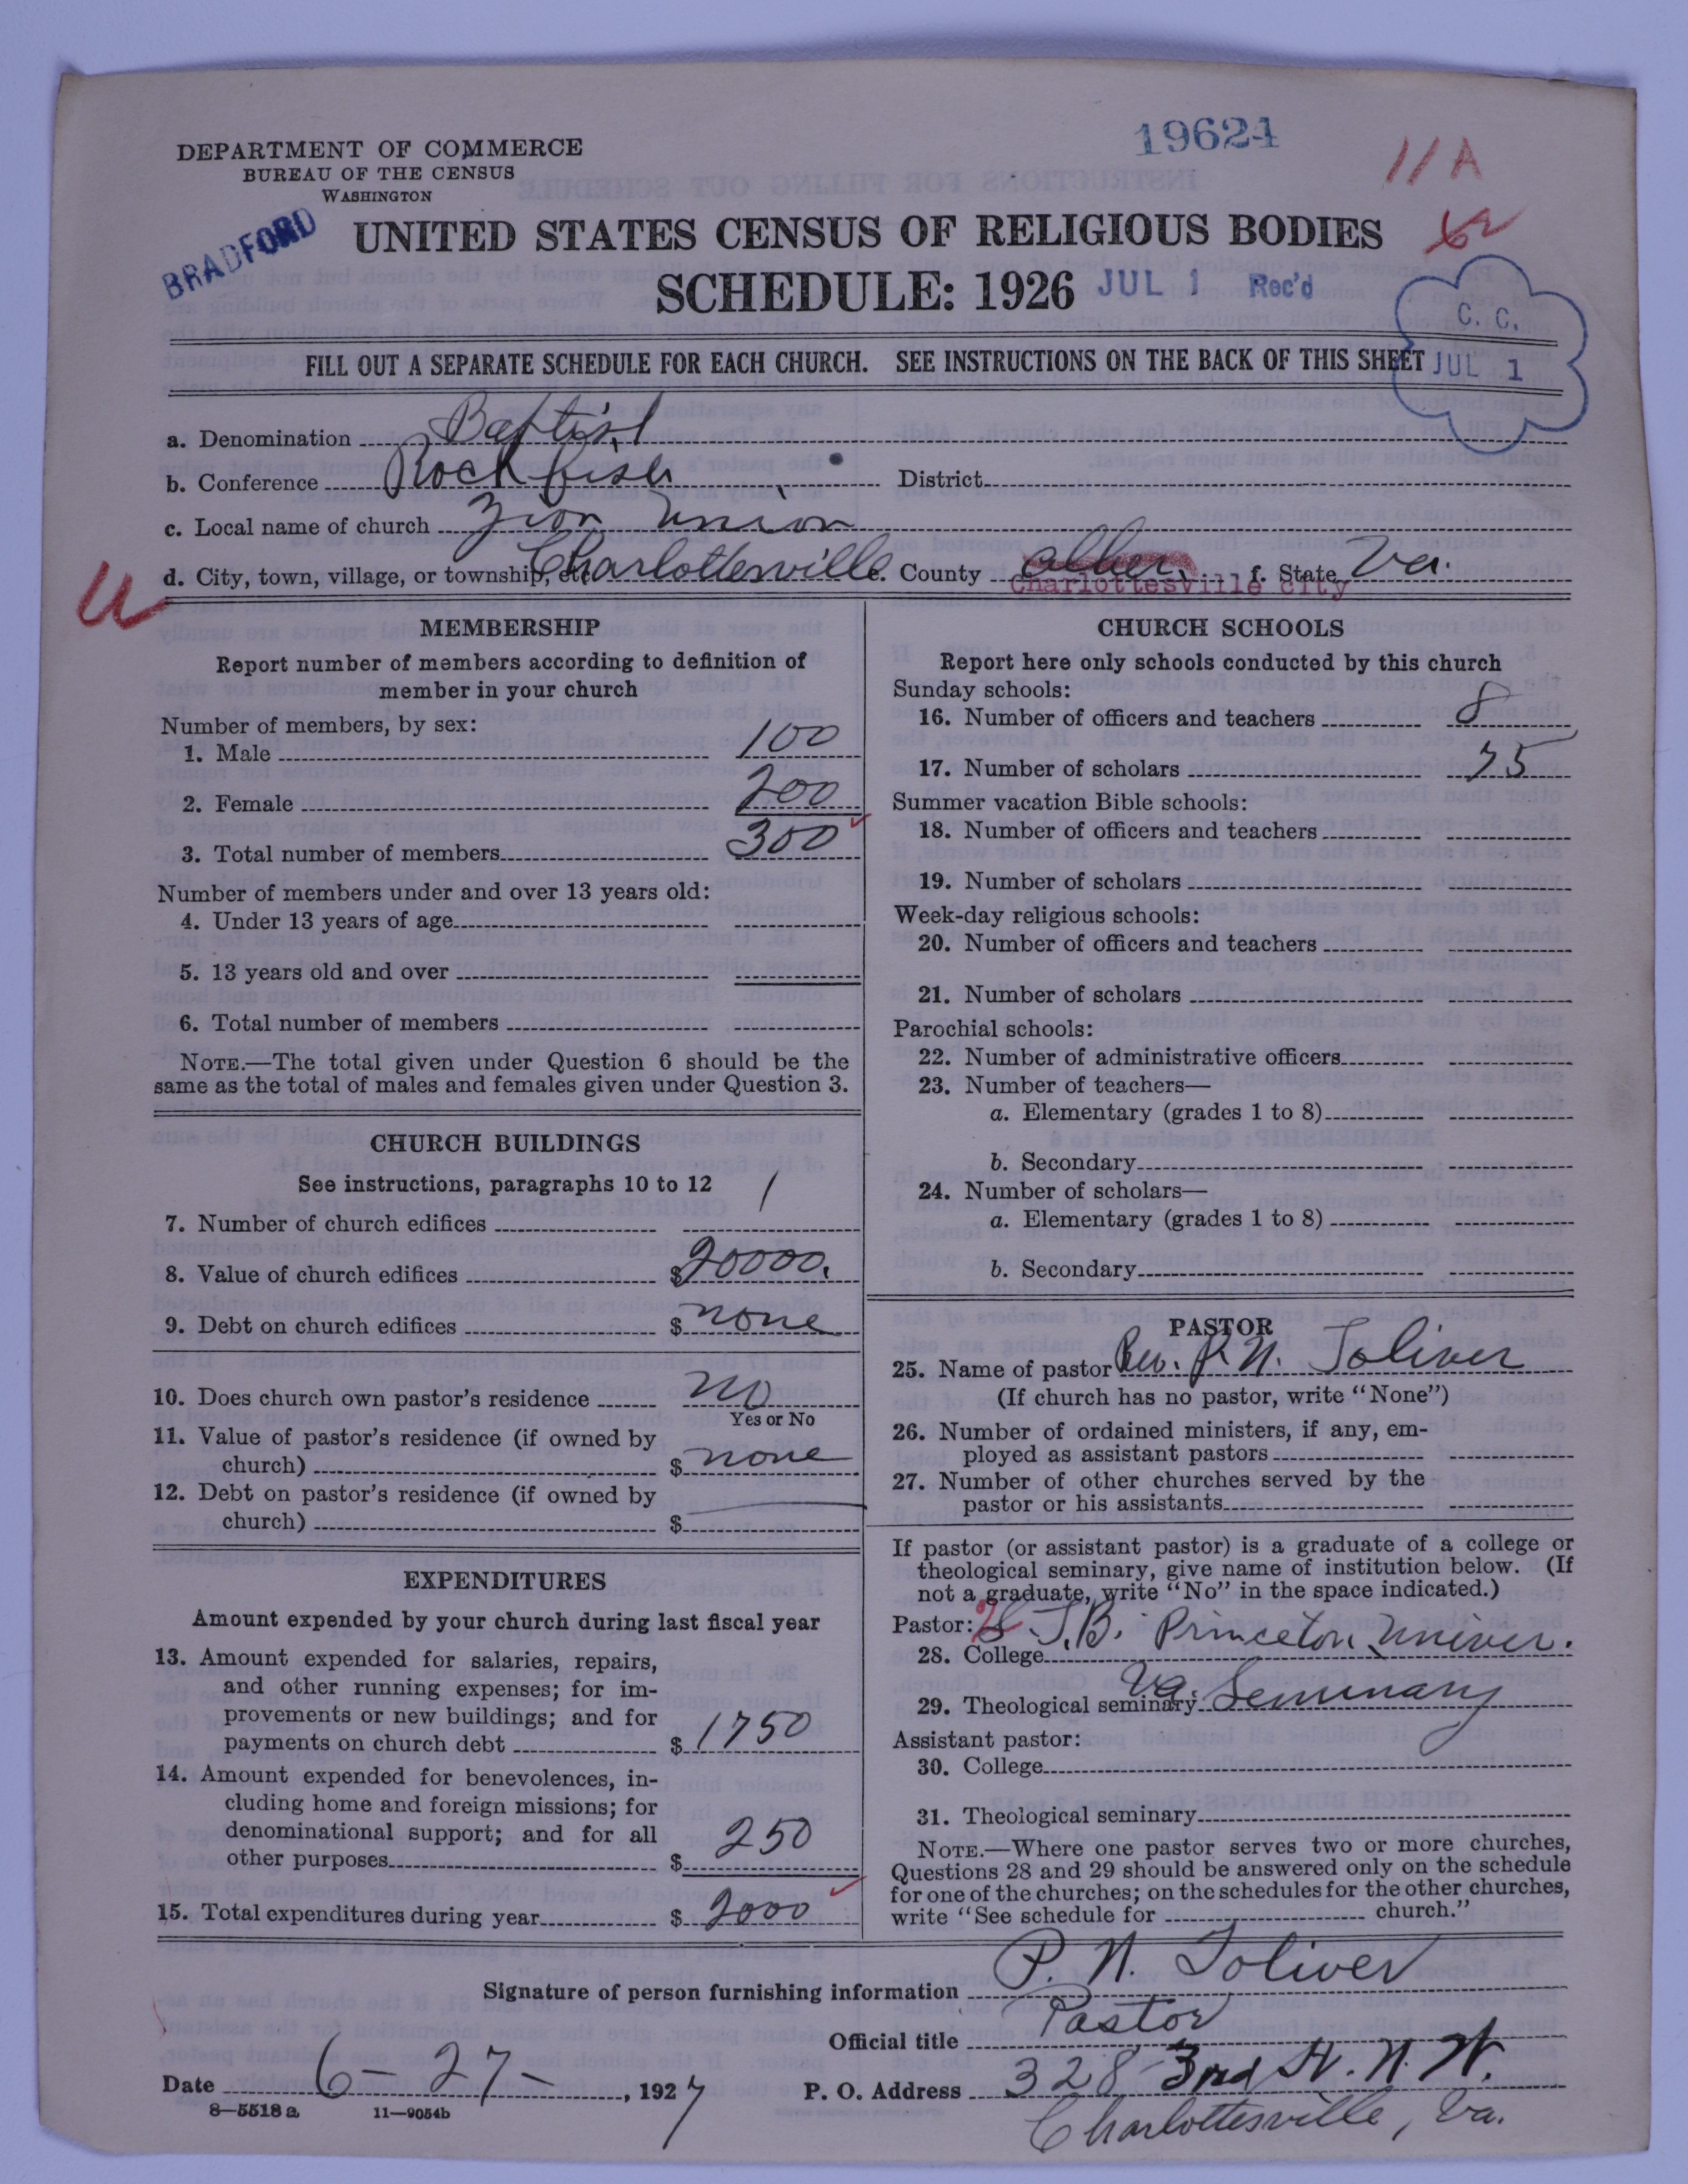 19624
11 A
DEPARTMENT OF COMMERCE
BUREAU OF THE CENSUS
WASHINGTON
BRADFORD
UNITED STATES CENSUS OF RELIGIOUS BODIES
SCHEDULE: 1926 JUL 1 Rec'd
C. C.
JUL 1
FILL OUT A SEPARATE SCHEDULE FOR EACH CHURCH. SEE INSTRUCTIONS ON THE BACK OF THIS SHEET
a. Denomination Baptist
b. Conference Rockfish District
c. Local name of church Zion Union
d. City, town, village, or township, etc. Charlottesville e. County Albem. f. State Va.
Charlottesville city
MEMBERSHIP
Report number of members according to definition of
member in your church
Number of members, by sex:
1. Male 100
2. Female 200
3. Total number of members 300
Number of members under and over 13 years old:
4. Under 13 years of age
5. 13 years old and over
6. Total number of members
NOTE.—The total given under Question 6 should be the
same as the total of males and females given under Question 3.
CHURCH BUILDINGS
See instructions, paragraphs 10 to 12
7. Number of church edifices 1
8. Value of church edifices $20000.
9. Debt on church edifices $ none
10. Does church own pastor's residence no
Yes or No
11. Value of pastor's residence (if owned by
church) $ none
12. Debt on pastor's residence (if owned by
church) $
EXPENDITURES
Amount expended by your church during last fiscal year
13. Amount expended for salaries, repairs,
and other running expenses; for im-
provements or new buildings; and for
payments on church debt $ 1750
14. Amount expended for benevolences, in-
cluding home and foreign missions; for
denominational support; and for all
other purposes $ 250
15. Total expenditures during year $ 2000
CHURCH SCHOOLS
Report here only schools conducted by this church
Sunday schools:
16. Number of officers and teachers 8
17. Number of scholars 75
Summer vacation Bible schools:
18. Number of officers and teachers
19. Number of scholars
Week-day religious schools:
20. Number of officers and teachers
21. Number of scholars
Parochial schools:
22. Number of administrative officers
23. Number of teachers—
a. Elementary (grades 1 to 8)
b. Secondary
24. Number of scholars—
a. Elementary (grades 1 to 8)
b. Secondary
PASTOR
25. Name of pastor Rev. P. N. Toliver
(If church has no pastor, write "None")
26. Number of ordained ministers, if any, em-
ployed as assistant pastors
27. Number of other churches served by the
pastor or his assistants
If pastor (or assistant pastor) is a graduate of a college or
theological seminary, give name of institution below. (If
not a graduate, write "No" in the space indicated.)
Pastor:
28. College S. T. B. Princeton Univer.
29. Theological seminary Va. Seminary
Assistant pastor:
30. College
31. Theological seminary
NOTE.—Where one pastor serves two or more churches,
Questions 28 and 29 should be answered only on the schedule
for one of the churches; on the schedules for the other churches,
write "See schedule for church."
Signature of person furnishing information P. N. Toliver
Official title Pastor
Date 6-27-, 1927 P. O. Address 328 3rd St. N. W.
Charlottesville, Va.
8—5518 a 11—9054b